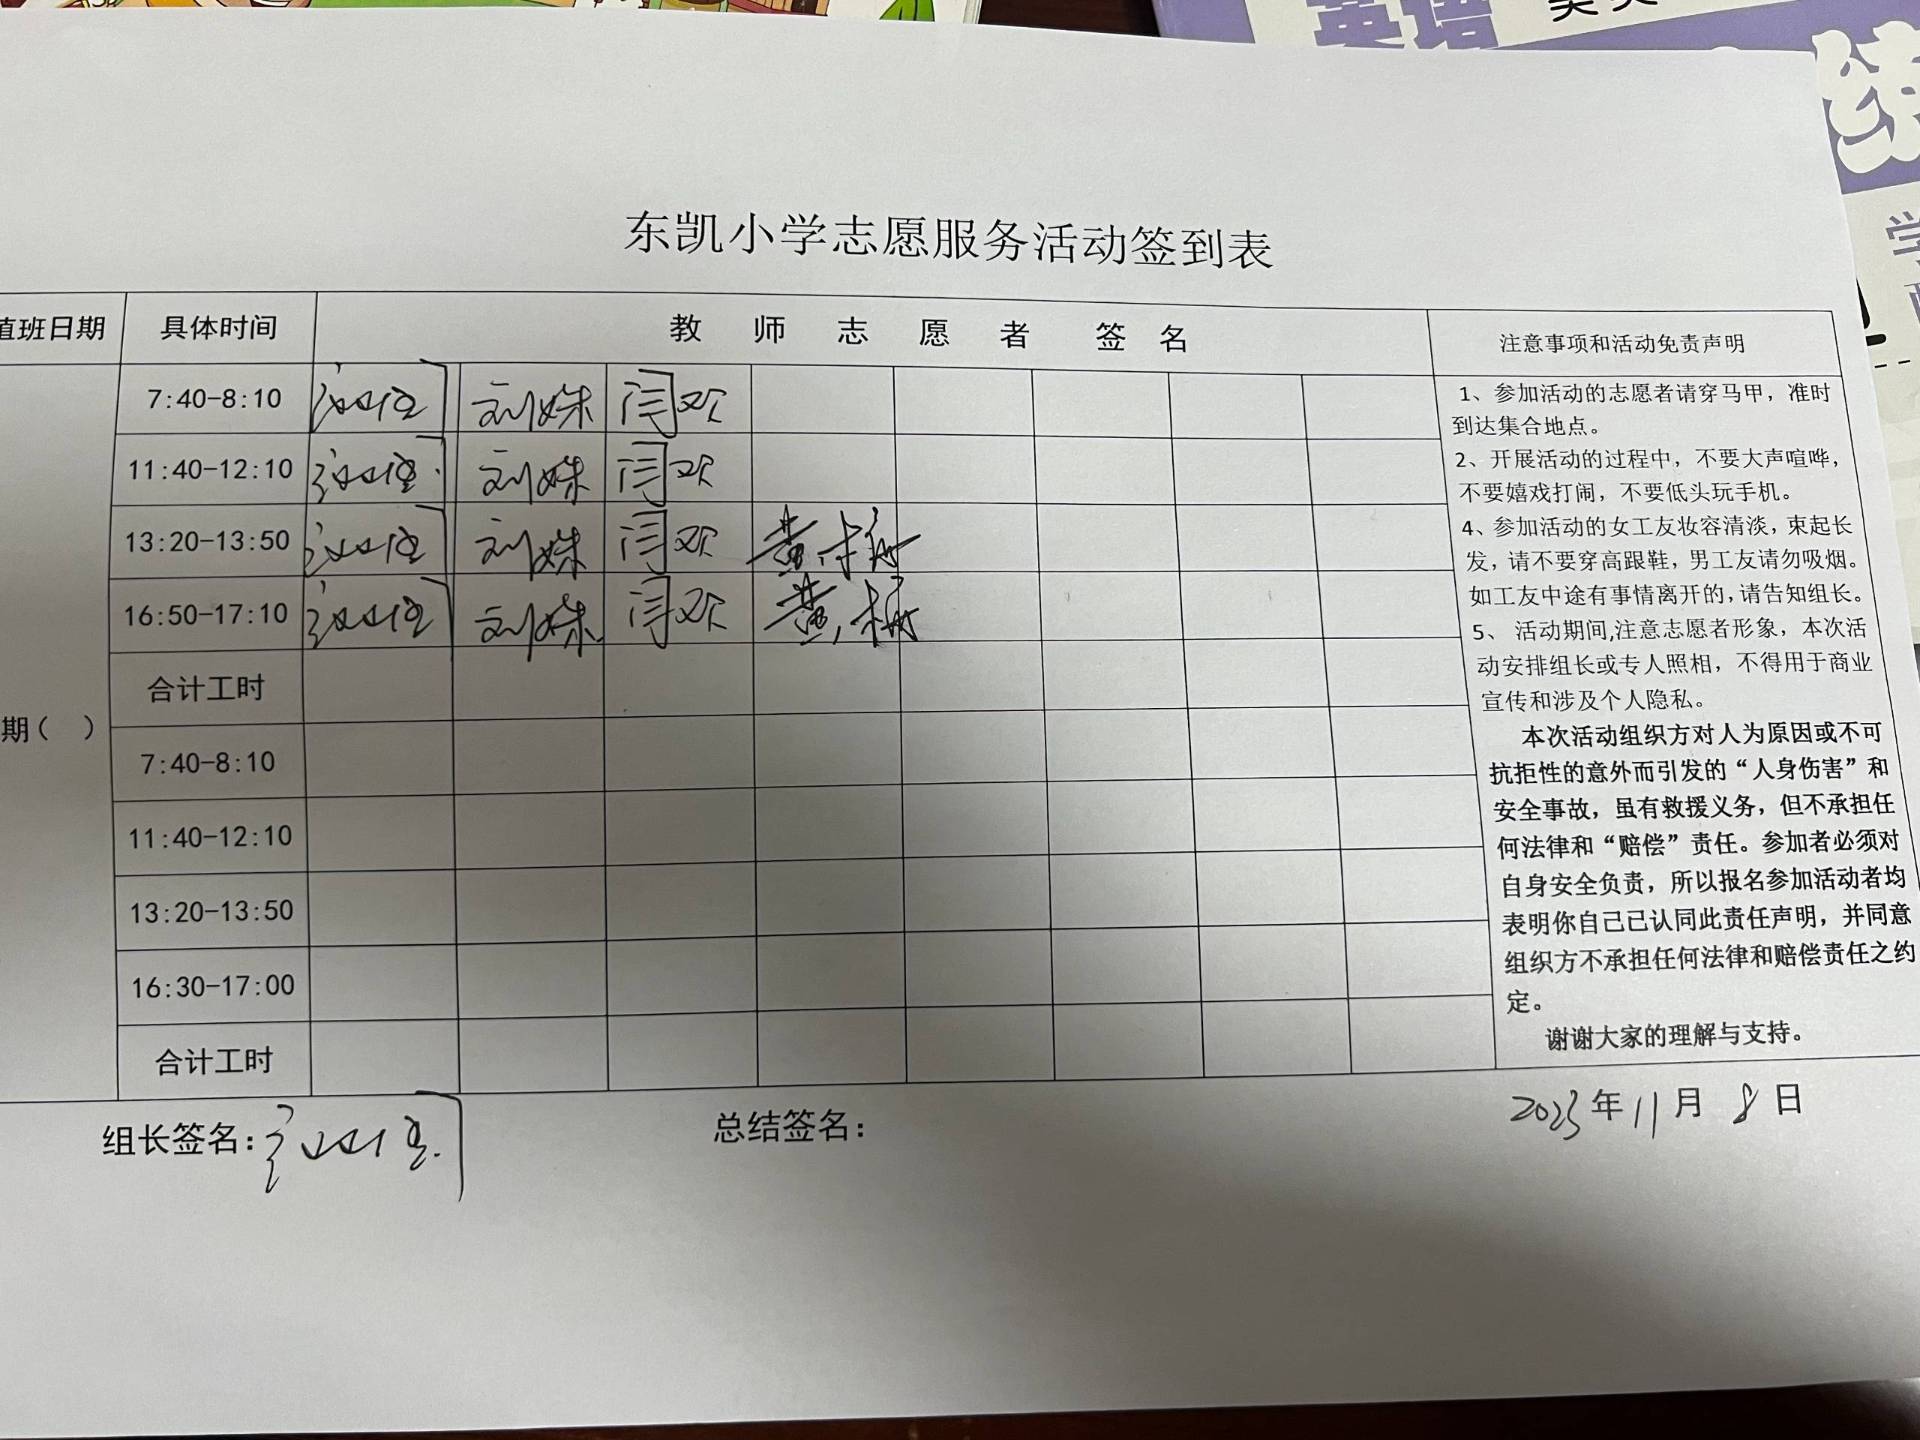 英语
东凯小学志愿服务活动签到表
值班日期 具体时间 教师志愿者签名 注意事项和活动免责声明
7:40-8:10 刘姝 闫欢
11:40-12:10 刘姝 闫欢
13:20-13:50 刘姝 闫欢 黄
16:50-17:10 刘姝 闫欢 黄
合计工时
期( )
7:40-8:10
11:40-12:10
13:20-13:50
16:30-17:00
合计工时
1、参加活动的志愿者请穿马甲，准时
到达集合地点。
2、开展活动的过程中，不要大声喧哗，
不要嬉戏打闹，不要低头玩手机。
4、参加活动的女工友妆容清淡，束起长
发，请不要穿高跟鞋，男工友请勿吸烟。
如工友中途有事情离开的，请告知组长。
5、 活动期间,注意志愿者形象，本次活
动安排组长或专人照相，不得用于商业
宣传和涉及个人隐私。
本次活动组织方对人为原因或不可
抗拒性的意外而引发的“人身伤害”和
安全事故，虽有救援义务，但不承担任
何法律和“赔偿”责任。参加者必须对
自身安全负责，所以报名参加活动者均
表明你自己己认同此责任声明，并同意
组织方不承担任何法律和赔偿责任之约
定。
谢谢大家的理解与支持。
组长签名: 总结签名：
2023年11月8日